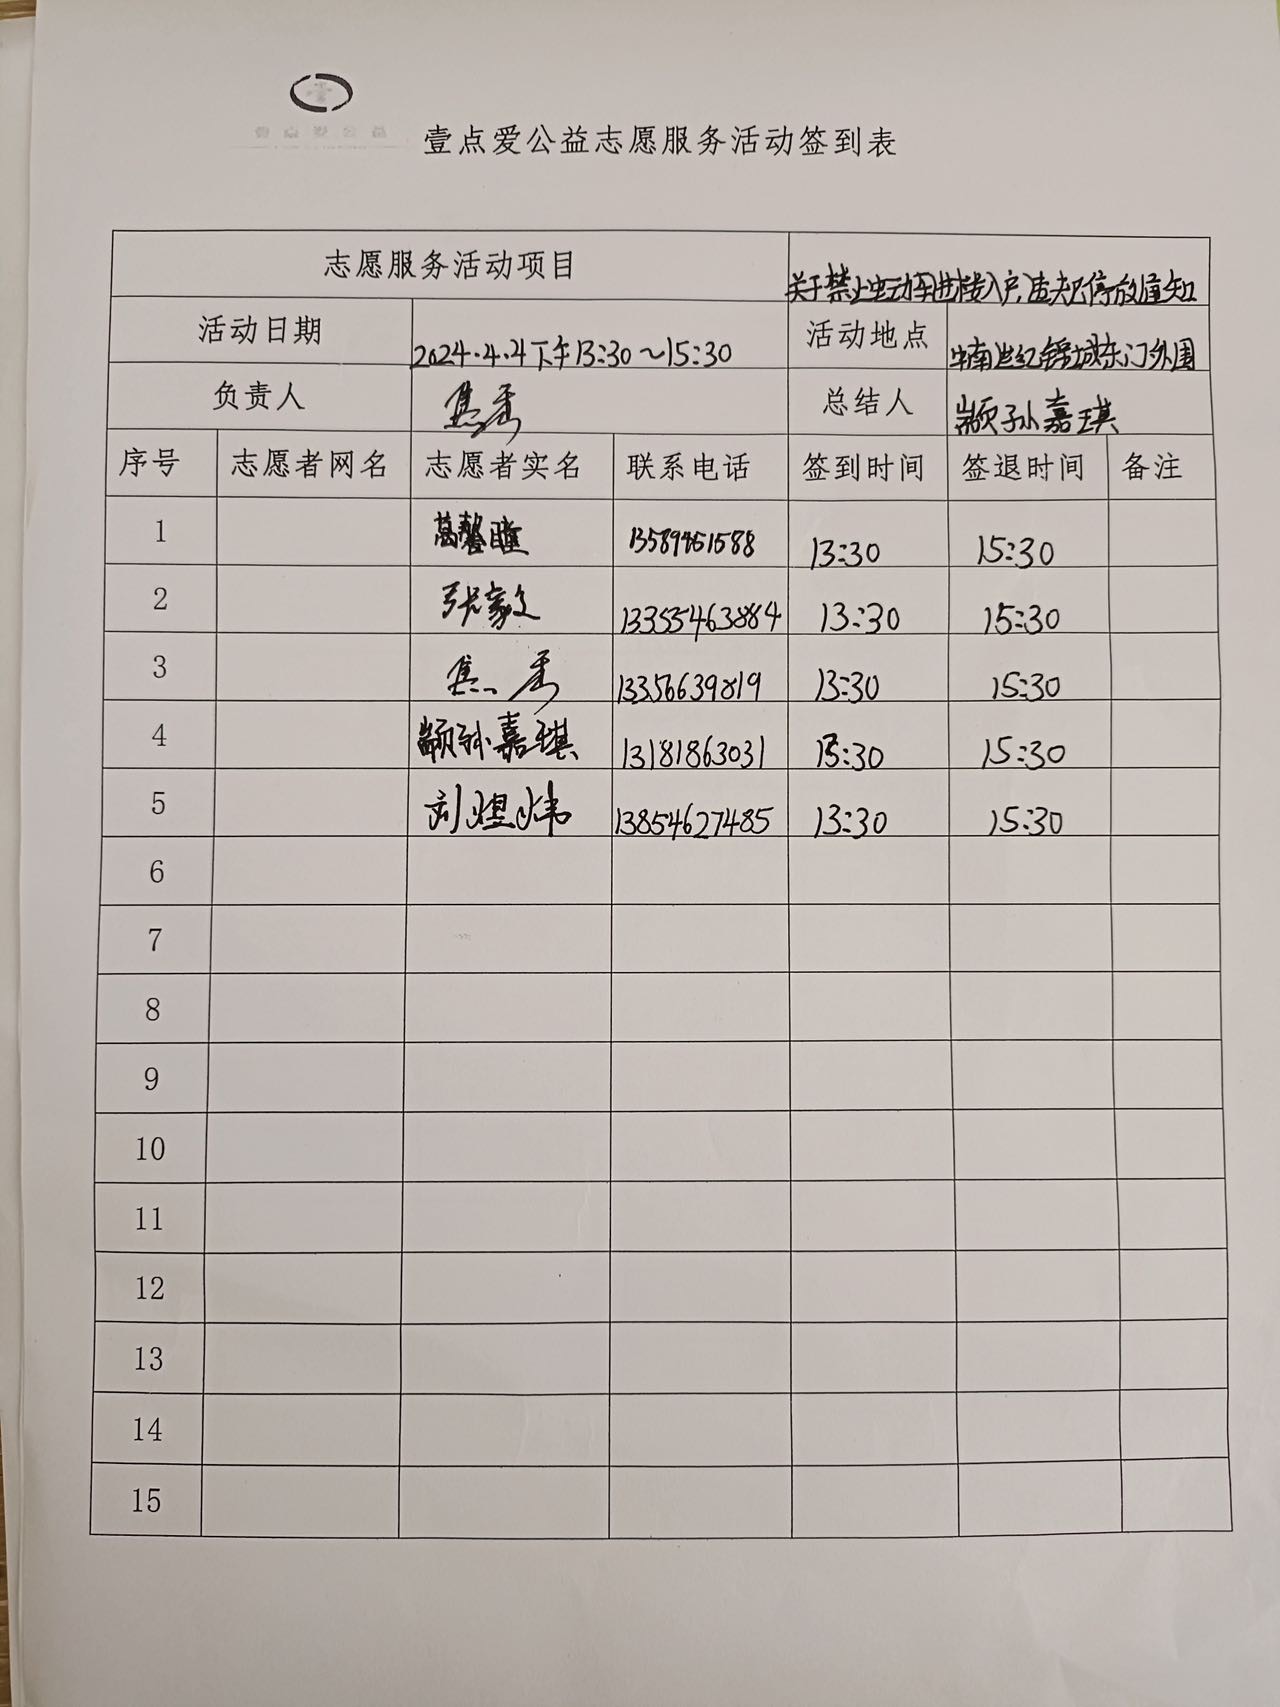 壹点爱公益
壹点爱公益志愿服务活动签到表
志愿服务活动项目 关于禁止电动车进楼入户,违规停放通知
活动日期 2024.4.4下午13:30~15:30 活动地点 中南世纪锦城东门外围
负责人 焦 总结人 颛孙嘉琪
序号 志愿者网名 志愿者实名 联系电话 签到时间 签退时间 备注
1 葛馨 13589451588 13:30 15:30
2 张家文 13355463884 13:30 15:30
3 焦 13356639819 13:30 15:30
4 颛孙嘉琪 13181863031 13:30 15:30
5 刘煜炜 13854627485 13:30 15:30
6
7
8
9
10
11
12
13
14
15